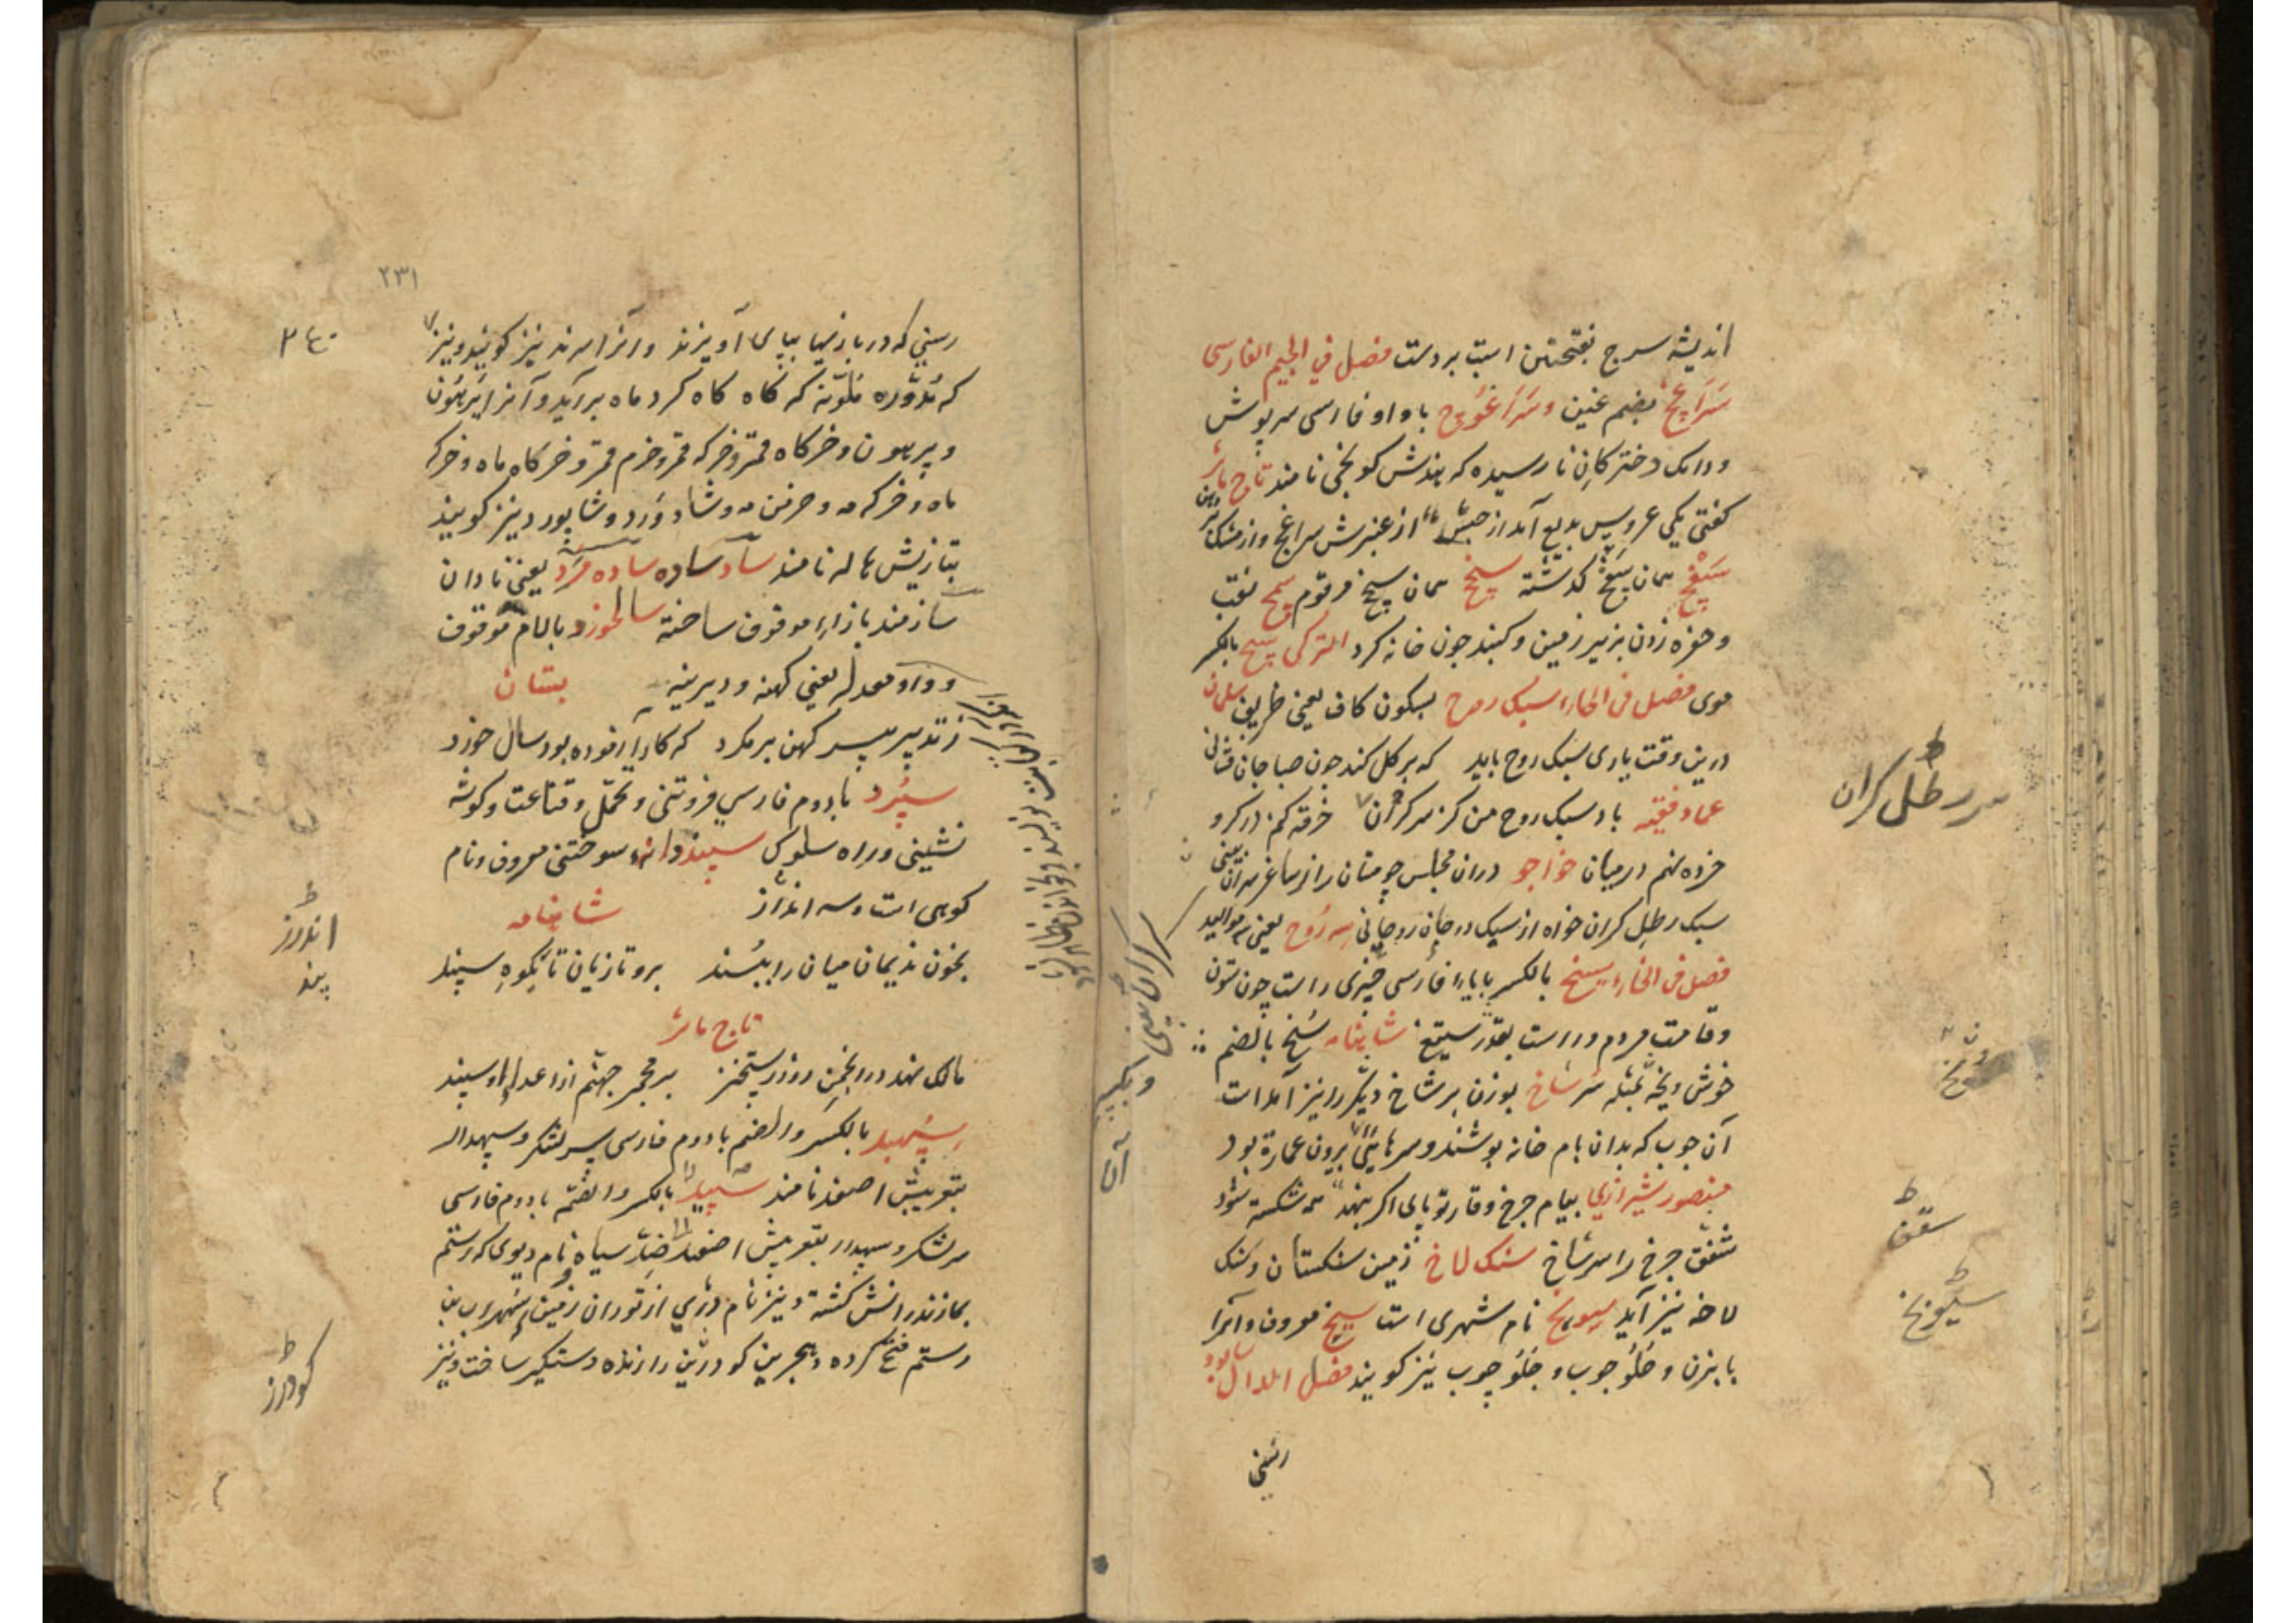 اندیشه سرج بفتحتین اسب بردست فصل في الجیم الفارسی
سراغچ بضم غین و سراغوچ با واو فارسی سرپوش
ودامک دخترکان نارسیده که هندش کونجی نامند تاج ماثر
کفتی یکی عروس بدیع آمد از حبش از عنبرش سراغچ و از مشک
همان گذشته سیخ همان سیخ مرقوم سمج نقب
و حفره زدن بزیر زمین و کنبد چون خانه کرد الترکی سیج بالکسر
موی فصل فی الحاء سبک روح بسکون کاف یعنی ظریف سلمان
درین وقت یاری سبک روح باید که بر کل کند چون صبا جان فشانی
عماد فقیه باد سبک روح من کز سر کران خرقه کم در کرو
خرده نهم در میان خواجو دران مجلس چو مستان را ز ساغر سرکران بینی
سبک رطل کران خواه از سبک در جان روحانی سه روح یعنی موالید
فصل فی الخاء سیخ بالکسر با یاء فارسی چیزی راست چون ستون
و قامت مردم و راست بقدر ستیغ شاهنامه سنخ بالضم
خوش و پخه بمثله سرشاخ بوزن بر شاخ دیگر را نیز آمد است
آن چوب که بدان بام خانه پوشند و سرهایش برون عمارة بود
منصور شیرازی ببام چرخ وقار تو پای اکر بنهد همه شکسته شود
شقق چرخ را سرشاخ سنک لاخ زمین سنکستان و سنک
لاخه نیز آید سیونخ نام شهری است سیخ معروف و آنرا
بابزن و خلو چوب و جلو چوب نیز کویند فصل الدال سابود
رسنی
سر رطل کران
سقف
سیونخ
۲۳۱
۲۴۰
رسنی که در بازیها بپای آویزند و آنرا سرند نیز کویند و نیز
که مدوّره ملونه که کاه کاه کرد ماه برآید و آنرا ایرهون
و پرهون و خرکاه قمر و خرکه قمر و خرم قمر و خرکاه ماه و خرکه
ماه و خرکه مه و خرمن مه و شادورد و شاپور دنیز کویند
بتازیش هاله نامند ساد ساده ساده مرد یعنی نادان
سازمند بازاء موقوف ساخته سالخورد بالام موقوف
و واو معدله یعنی کهنه و دیرینه بستان
ز تدبیر پیر کهن برمکرد که کار آزموده بود سال خورد
سپرد با دوم فارسی فروتنی و تحمل و قناعت و کوشه
نشینی و راه سلوک سپند دانه سوختنی معروف و نام
کوهی است و سه انداز شاهنامه
بخون نریمان میان را ببند برو تازیان تا بکوه سپند
تاج ماثر
مالک نهد در انجمن روز رستخیز بر مجمر جهنم از اعداء او سپند
سپهبد بالکسر والضم با دوم فارسی سرلشکر و سپهدار
بتعریبش اصفهبد نامند سپید بالکسر والضم با دوم فارسی
سرلشکر و سپهدار بتعریبش اصفهبد ضد سیاه و نام دیوی که رستم
بمازندرانش کشته و نیز نام دژی از توران زمین سهراب بن
رستم فتح کرده و هجیر بن کودرز را زنده دستکیر ساخت و نیز
اندرز
پند
کودرز